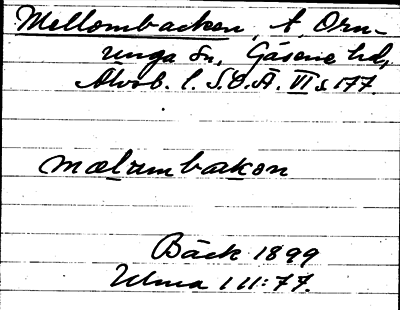 Mellombacken, t, Orn-
unga sn, Gäsene hd,
Älvsb. l. S.O.Ä. VI s 177.
mælembakon
Bäck 1899
Ulma 111:77.